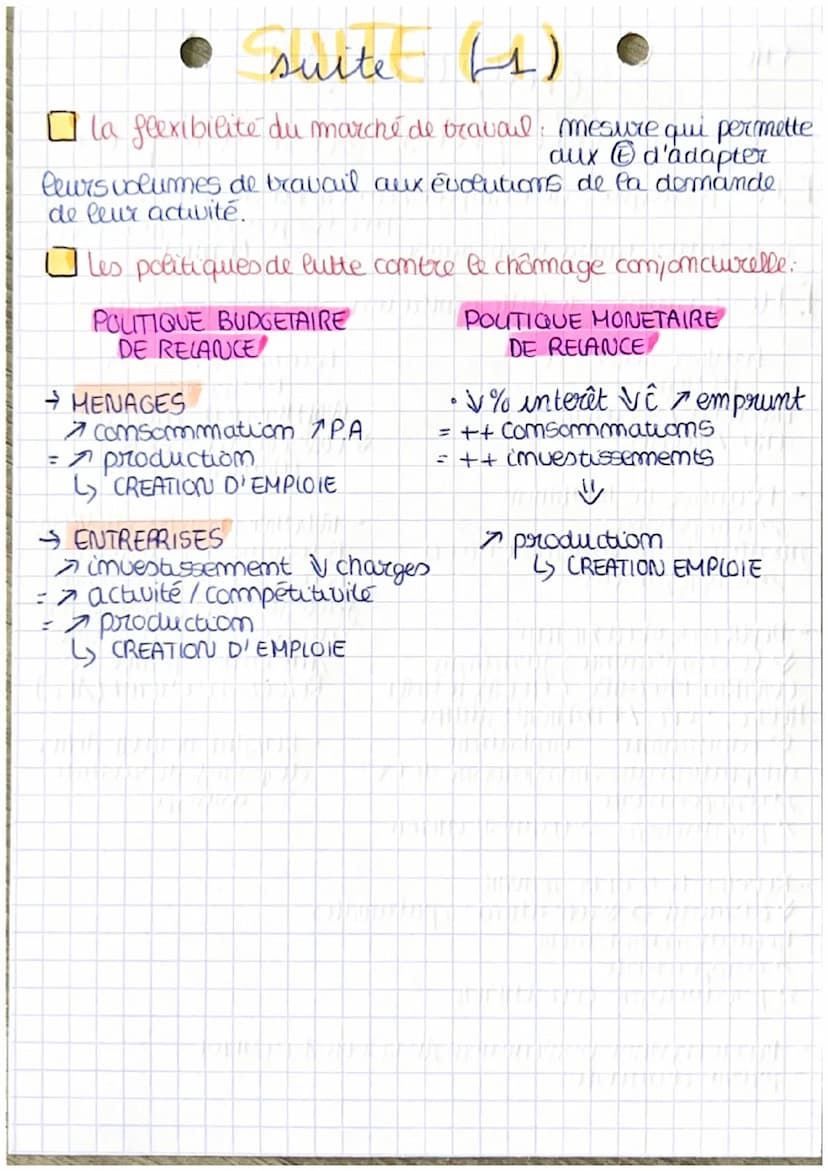 SUITE (1)
suite (1)
La flexibilité du marché de travail : mesure qui permette
aux Ⓔ d'adapter
leurs volumes de travail aux évolutions de la demande
de leur activité.
Les politiques de lutte contre le chômage conjoncturelle :
POLITIQUE BUDGETAIRE
DE RELANCE
→ MENAGES
↗ consommation ↗ P.A
= ↗ production
↳ CREATION D'EMPLOIE
→ ENTREPRISES
↗ investissement ↓ charges
= ↗ activité / compétitivité
= ↗ production
↳ CREATION D'EMPLOIE
POLITIQUE MONETAIRE
DE RELANCE
• ↓ % interêt ↓ ĉ ↗ emprunt
= ++ consommations
= ++ investissements
⇓
↗ production
↳ CREATION EMPLOIE